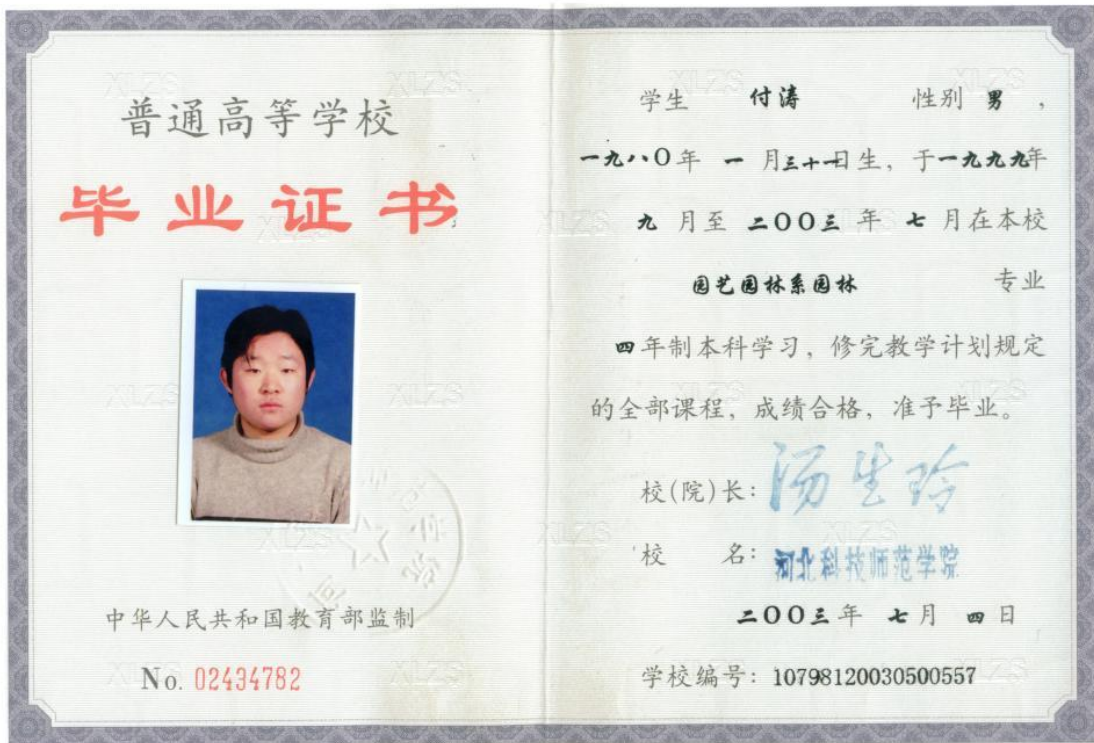 普通高等学校
毕业证书
中华人民共和国教育部监制
No. 02434782
学生 付涛 性别 男，
一九八〇年 一 月三十一日生，于一九九九年
九 月至 二〇〇三 年 七 月在本校
园艺园林系园林 专业
四年制本科学习，修完教学计划规定
的全部课程，成绩合格，准予毕业。
校(院)长：汤生玲
校 名：河北科技师范学院
二〇〇三年 七月 四日
学校编号：10798120030500557
XLZS